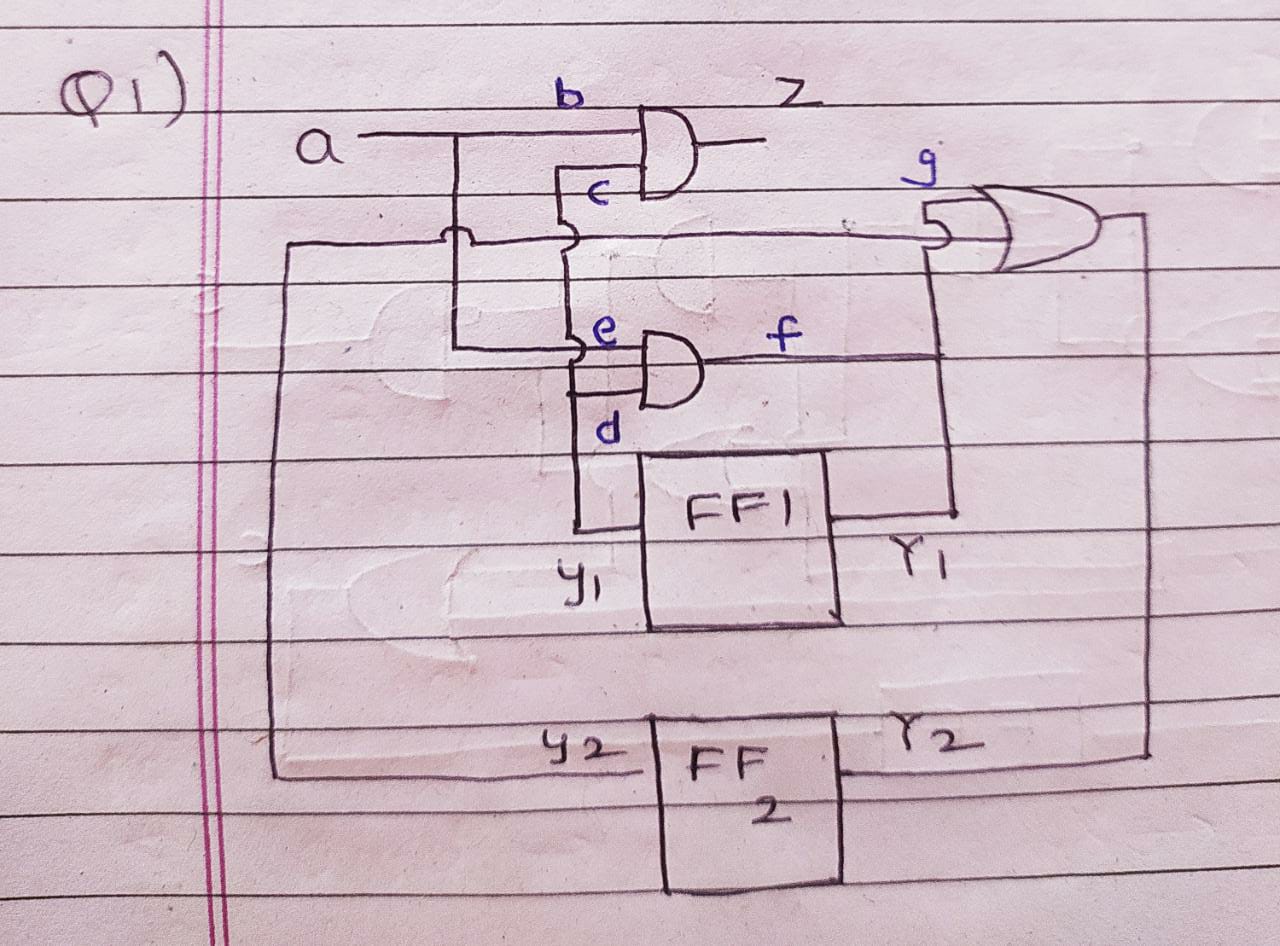 Q1)
b
Z
a
c
g
e
f
d
FF1
y1
Y1
y2
FF
2
Y2